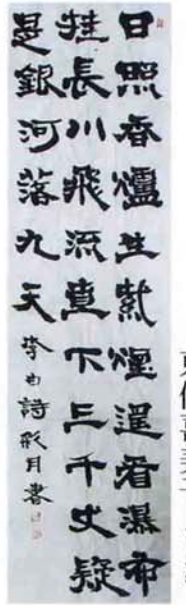 日照香爐生紫煙遥看瀑布
挂長川飛流直下三千丈疑
是銀河落九天
李白詩彩月書